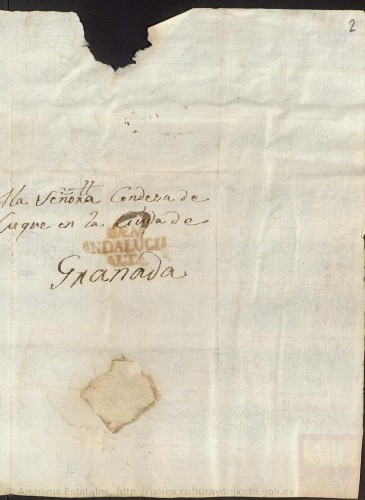 2
Mla Señora Condesa de
Luque en la Ciudad de
ANDALUCIA
ALTA
Granada
© Archivos Estatales, http://pares.culturaydeporte.gob.es